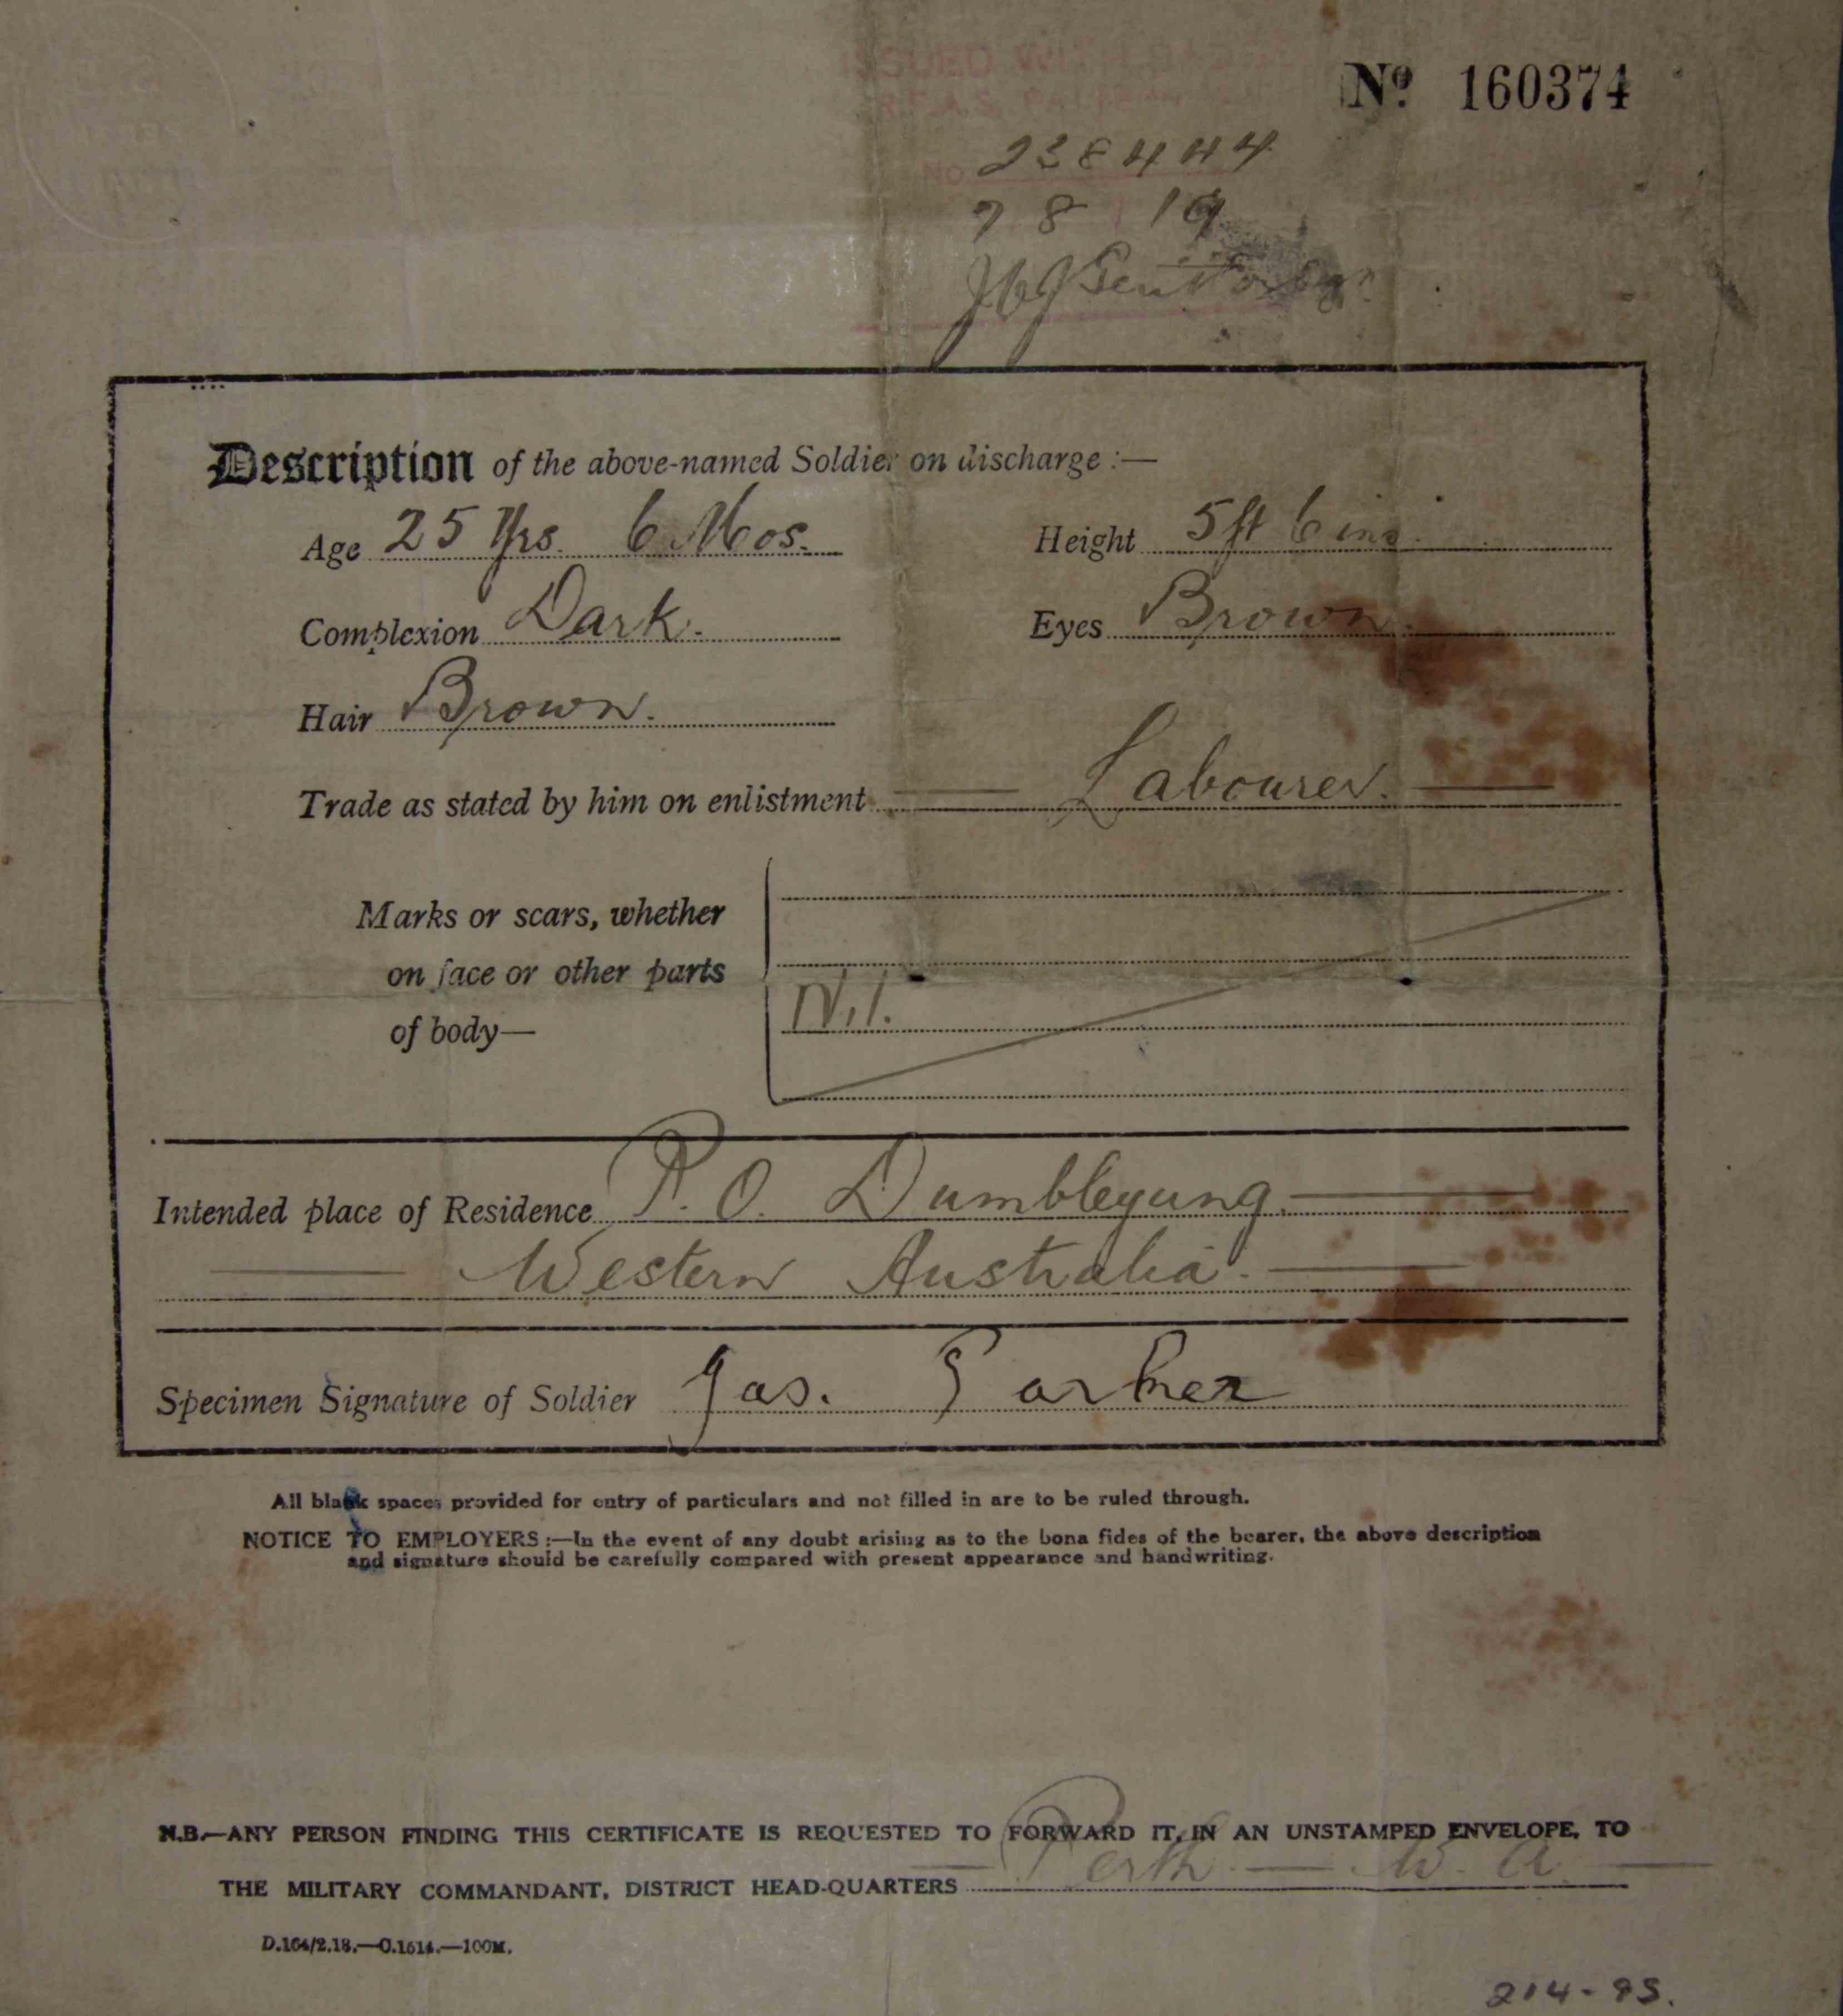 ISSUED WITH
Nº 160374
No. 238444
7 8 19
Description of the above-named Soldier on discharge :—
Age 25 Yrs. 6 Mos. Height 5 ft 6 ins.
Complexion Dark. Eyes Brown.
Hair Brown.
Trade as stated by him on enlistment — Labourer. —
Marks or scars, whether
on face or other parts
Nil.
of body—
Intended place of Residence P. O. Dumbleyung. —
— Western Australia. —
Specimen Signature of Soldier Jas.
All blank spaces provided for entry of particulars and not filled in are to be ruled through.
NOTICE TO EMPLOYERS :—In the event of any doubt arising as to the bona fides of the bearer, the above description
and signature should be carefully compared with present appearance and handwriting.
N.B.—ANY PERSON FINDING THIS CERTIFICATE IS REQUESTED TO FORWARD IT, IN AN UNSTAMPED ENVELOPE, TO
THE MILITARY COMMANDANT, DISTRICT HEAD-QUARTERS — Perth — W. A —
D.164/2.18.—C.1614.—100M.
214-95.